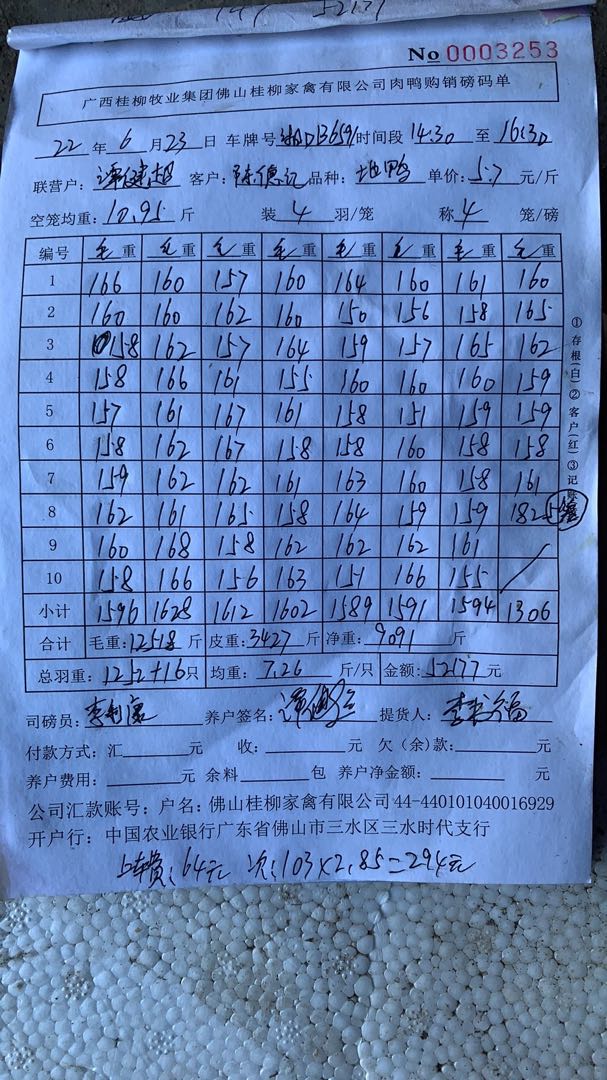 No 0003253
广西桂柳牧业集团佛山桂柳家禽有限公司肉鸭购销磅码单
22年6月23日 车牌号 湘DB3659 时间段 14:30 至 16:30
联营户: 谭健超 客户: 陈德记 品种: 地鸭 单价: 5.7 元/斤
空笼均重: 10.95 斤 装 4 羽/笼 称 4 笼/磅
编号 毛重 毛重 毛重 毛重 毛重 毛重 毛重 毛重
1 166 160 157 160 164 160 161 160
2 160 160 162 160 150 156 158 165
3 158 162 157 164 159 157 165 162
4 158 166 161 155 160 160 160 159
5 157 161 167 161 158 151 159 159
6 158 162 167 158 158 160 158 158
7 159 162 162 161 163 160 158 161
8 162 161 165 158 164 159 159 182 5笼
9 160 168 158 162 162 162 161
10 158 166 156 163 151 166 155
小计 1596 1628 1612 1602 1589 1591 1594 1306
合计 毛重: 12518 斤 皮重: 3427 斤 净重: 9091 斤
总羽重: 1252+16 只 均重: 7.26 斤/只 金额: 52177 元
司磅员: 养户签名: 提货人:
付款方式: 汇 元 收: 元 欠(余)款: 元
养户费用: 元 余料 包 养户净金额: 元
公司汇款账号: 户名: 佛山桂柳家禽有限公司44-440101040016929
开户行: 中国农业银行广东省佛山市三水区三水时代支行
上车费: 64元 次: 103×2.85=294元
①存根(白)②客户(红)③记账